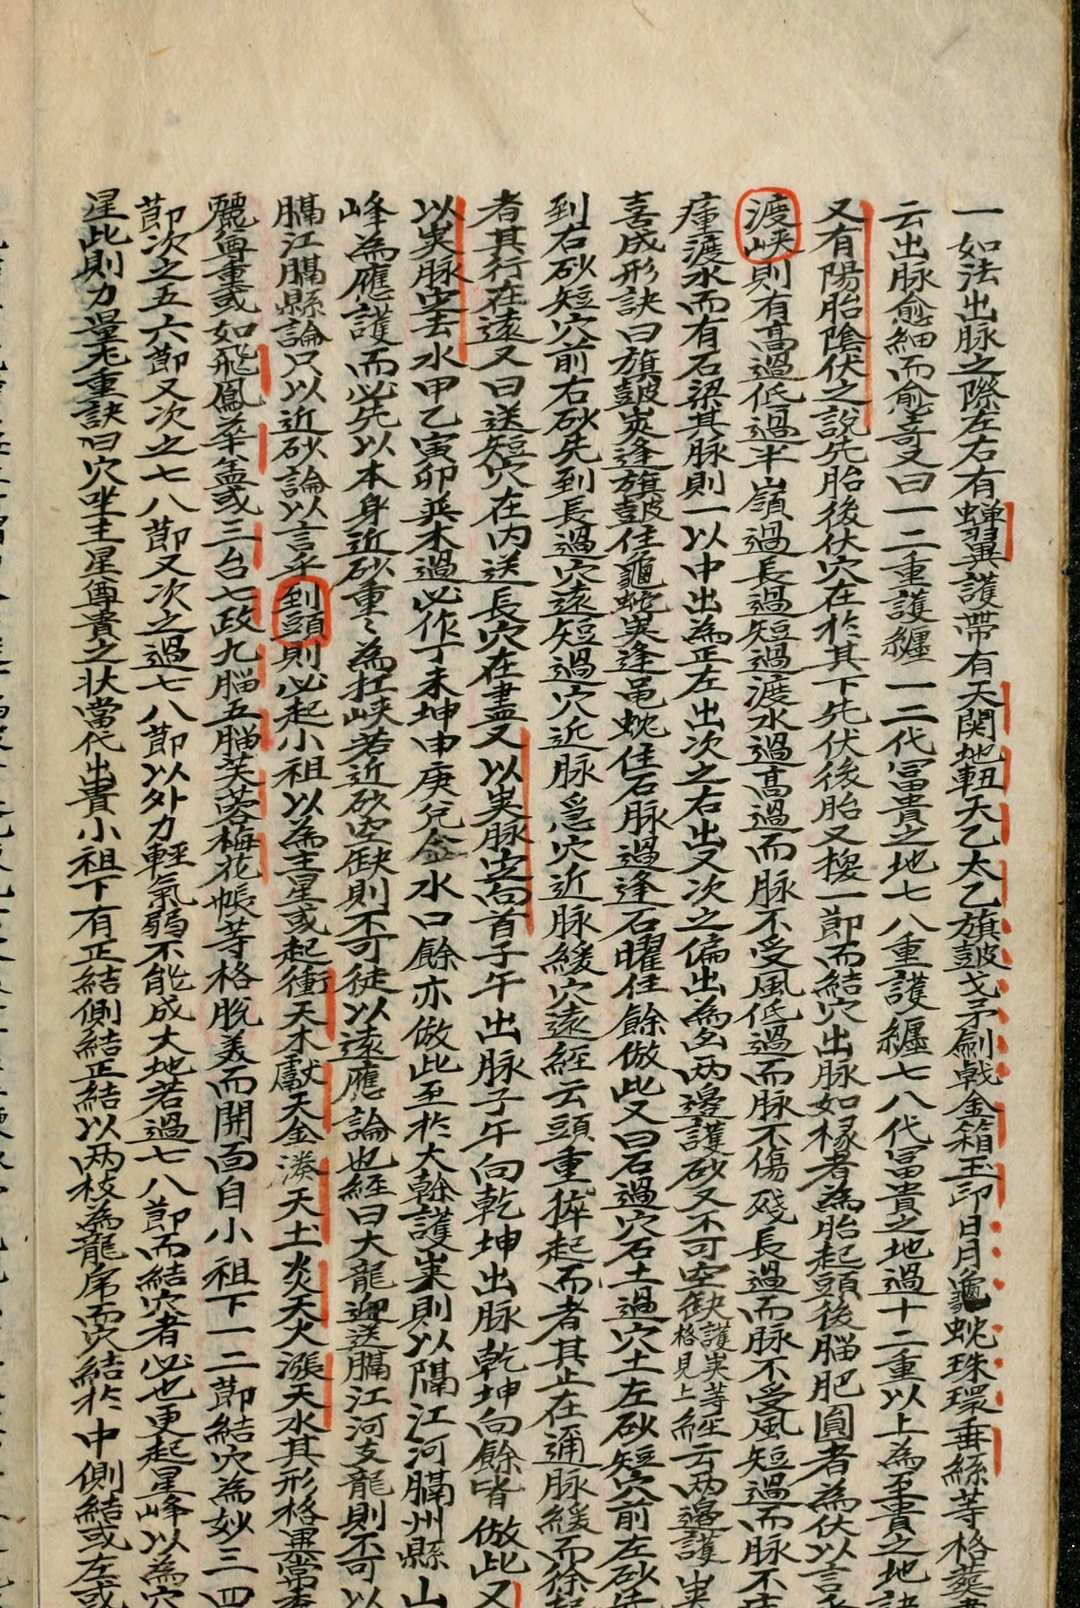 一如法出脉之際左右有蟬翼護帶有天関地軸天乙太乙旗皷戈矛劍戟金箱玉印日月龜蛇珠環垂絲等格葬
云出脉愈細而愈竒又曰一二重護纏一二代冨貴之地七八重護纏七八代冨貴之地過十二重以上為至貴之地訣
又有陽胎陰伏之說先胎後伏穴在於其下先伏後胎又換一節而結穴出脉如椽者為胎起頭後腦肥圓者為伏以言乎
渡峽則有高過低過半嶺過長過短過渡水過高過而脉不受風低過而脉不傷殘長過而脉不受風短過而脉不
瘇渡水而有石梁其脉則一以中出為正左出次之右出又次之偏出為劣两邊護砂又不可空缺護峽等格見上經云两邉護峽
喜成形訣曰旗皷峽逢旗皷住龜蛇峽逢黾蛇住石脉過逢石曜住餘倣此又曰石過穴石土過穴土左砂短穴前左砂
到右砂短穴前右砂先到長過穴遠短過穴近脉急穴近脉緩穴遠經云頭重捽起而者其止在邇脉緩而徐起
者其行在遠又曰送短穴在内送長穴在盡又以峽脉定向首子午出脉子午向乾坤出脉乾坤向餘皆倣此又
以峽脉定去水甲乙寅卯巽木過必作丁未坤申庚兌金水口餘亦倣此至於大幹護峽則以隔江河隔州縣山
峰為應護而必先以本身近砂重〻為扛峽若近砂空缺則不可徒以遠應論也經曰大龍迎送隔江河支龍則不可以
隔江隔縣論只以近砂論以言乎到頭則必起小祖以為主星或起衝天木獻天金湊天土炎天火漲天水其形格異常秀
麗尊重或如飛鳳華盖或三台七政九腦五腦芙蓉梅花帳等格脫美而開面自小祖下一二節結穴為妙三四
節次之五六節又次之七八節又次之過七八節以外力輕氣弱不能成大地若過七八節而結穴者必也更起星峰以為穴
星此則力量尤重訣曰穴坐主星尊貴之状當代出貴小祖下有正結側結正結以两枝為龍虎而穴結於中側結或左或